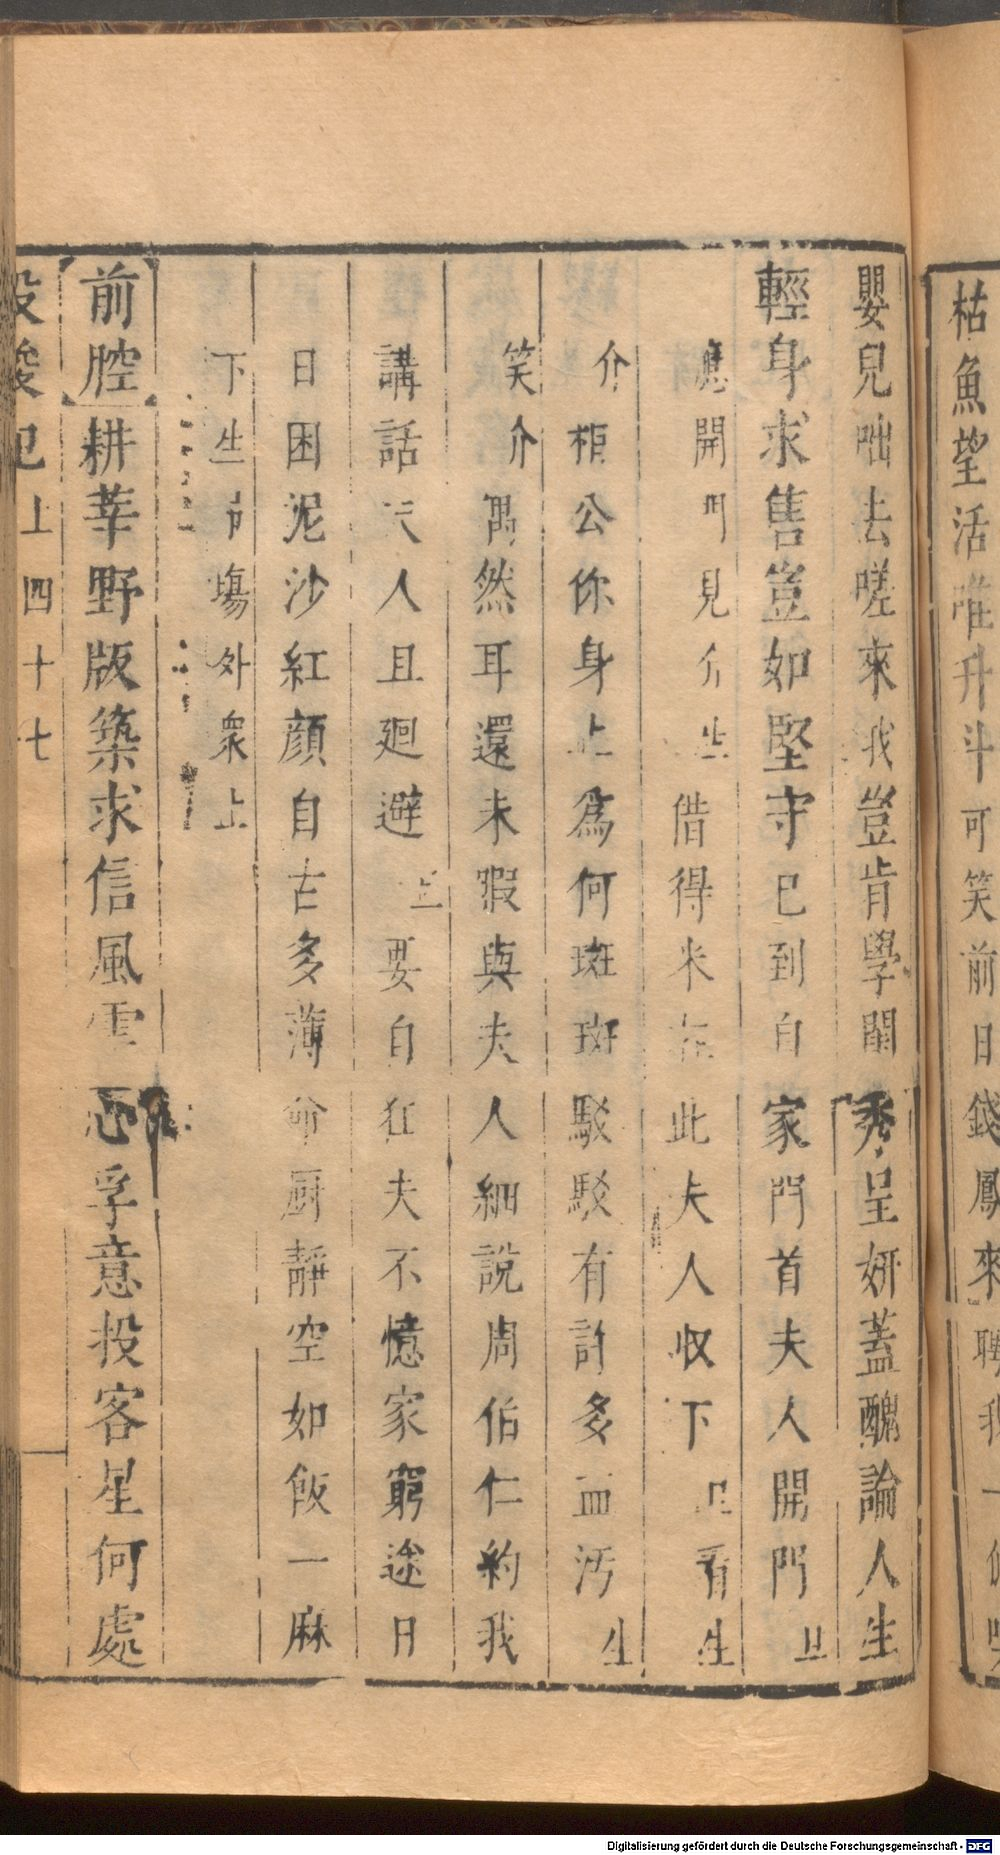 枯魚望活唯升斗可笑前日錢鳳來聘我一
嬰兒咄去嗟來我豈肯學閨秀呈妍蓋醜論人生
輕身求售豈如堅守已到自家門首夫人開門旦
應開門見介生借得米在此夫人收下旦看生
介相公你身上爲何斑斑駁駁有許多血汚生
笑介偶然耳還未暇與夫人細說周伯仁約我
講話夫人且廻避旦要自狂夫不憶家窮途日
日困泥沙紅顔自古多薄命厨靜空如飯一麻
下生弔塲外衆上
前腔耕莘野版築求信風雲心孚意投客星何處
投梭記上四十七
Digitalisierung gefördert durch die Deutsche Forschungsgemeinschaft - DFG